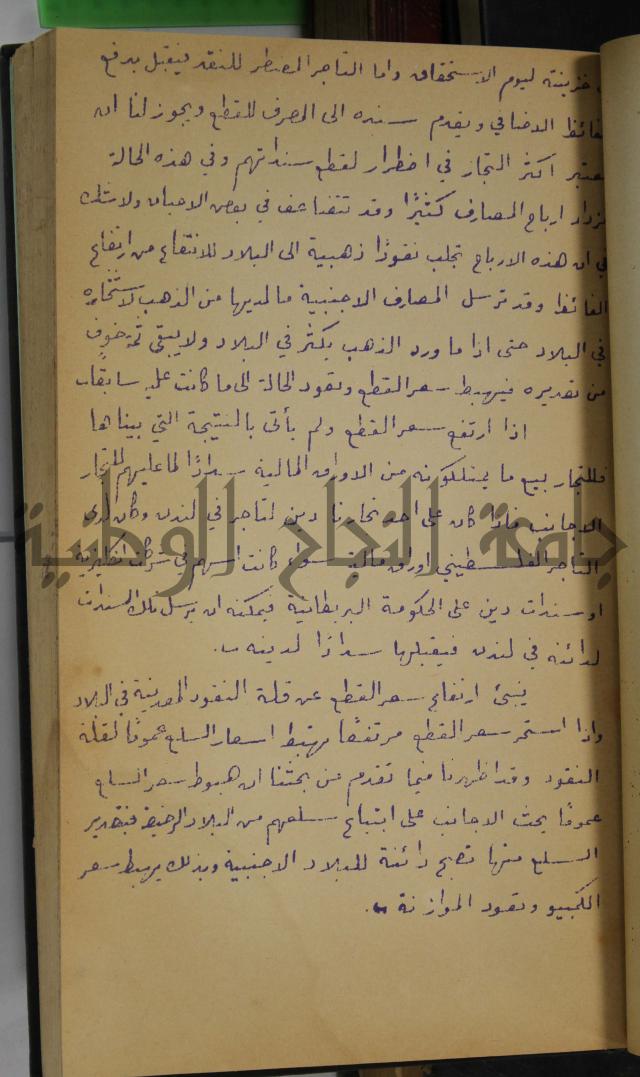 خزينته ليوم الاستحقاق واما التاجر المضطر للنقد فيقبل بدفع
الفائظ الاضافي ويقدم سنده الى المصرف للقطع ويجوز لنا ان
نعتبر اكثر التجار في اضطرار لقطع سنداتهم وفي هذه الحالة
تزداد ارباح المصارف كثيرًا وقد تتضاعف في بعض الاحيان ولا شك
في ان هذه الارباح تجلب نقودًا ذهبية الى البلاد للانتفاع من ارتفاع
الفائظ وقد ترسل المصارف الاجنبية ما لديها من الذهب لاستثماره
في البلاد حتى اذا ما ورد الذهب يكثر في البلاد ولا يبقى ثمة خوف
من تصديره فيهبط سعر القطع وتعود الحالة الى ما كانت عليه سابقا
اذا ارتفع سعر القطع ولم يأتى بالنتيجة التي بيناها
فللتجار بيع ما يمتلكونه من الاوراق المالية سدادًا لما عليهم للتجار
الاجانب فاذا كان على احد تجارنا دين لتاجر في لندن وكان لدى
التاجر الفلسطيني اوراق مالية سواء كانت اسهم في شركات انكليزية
او سندات دين على الحكومة البريطانية فيمكنه ان يرسل تلك السندات
لدائنه في لندن فيقبلها سدادًا لدينه .
ينبئ ارتفاع سعر القطع عن قلة النقود المعدنية في البلاد
واذا استمر سعر القطع مرتفعًا يهبط اسعار السلع عمومًا لقلة
النقود وقد اظهرنا فيما تقدم من بحثنا ان هبوط سعر السلع
عمومًا يحث الاجانب على ابتياع سلعهم من البلاد الرخيصة فبتصدير
السلع منها تصبح دائنة للبلاد الاجنبية وبذلك يهبط سعر
الكمبيو وتعود الموازنة .
جامعة النجاح الوطنية